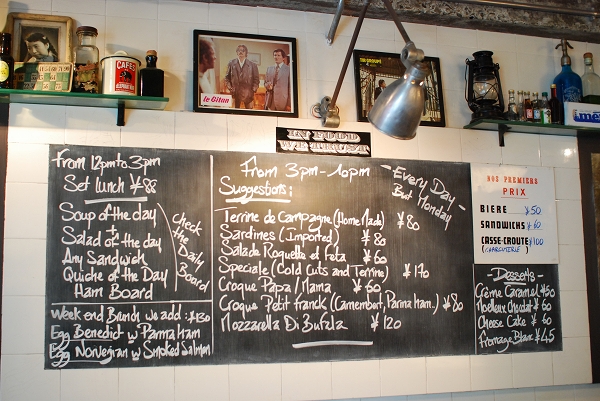 CAFES
le Gitan
IN FOOD
WE TRUST
From 12pm to 3pm
Set lunch ¥88
Soup of the day
+
Salad of the day
Any Sandwich
Quiche of the Day
Ham Board
Check
the Daily
Board
Week end Brunch we add : ¥130
Egg Benedict w Parma ham
Egg Norvegian w Smoked Salmon
From 3pm - 10pm
- Every Day -
But Monday
Suggestions :
Terrine de Campagne (Home Made) ¥80
Sardines (Imported) ¥80
Salade Roquette et Feta ¥60
Speciale (Cold Cuts and Terrine) ¥170
Croque Papa / Mama ¥60
Croque Petit franck (Camembert, Parma ham.) ¥80
Mozzarella Di Bufala ¥120
NOS PREMIERS
PRIX
BIERE ¥50
SANDWICHS ¥60
CASSE-CROUTE ¥100
(CHARCUTERIE)
Desserts
Crème Caramel ¥50
Moelleux Chocolat ¥60
Cheese Cake ¥60
Fromage Blanc ¥45